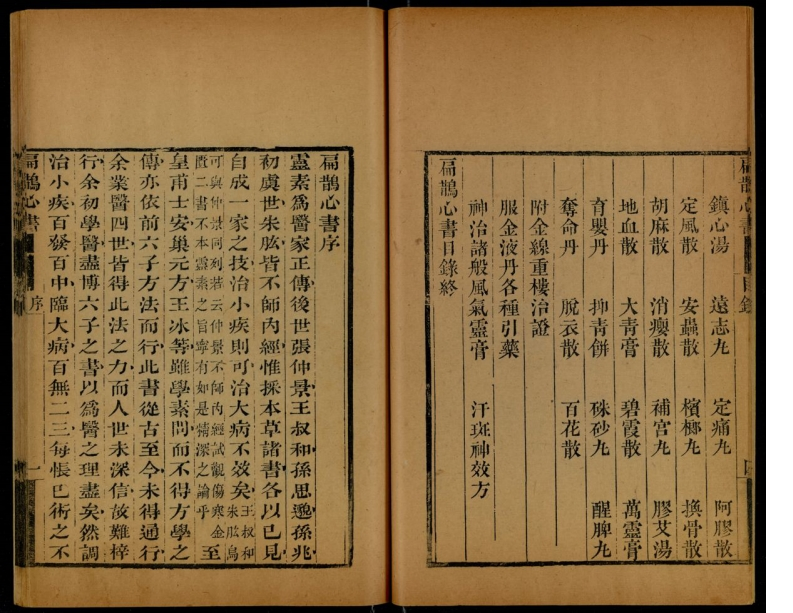 扁鵲心書 目錄
鎮心湯 遠志丸 定痛丸 阿膠散
定風散 安蟲散 檳榔丸 換骨散
胡麻散 消癭散 補宮丸 膠艾湯
地血散 大青膏 碧霞散 萬靈膏
育嬰丹 抑青餅 硃砂丸 醒脾丸
奪命丹 脫衣散 百花散
附金線重樓治證
服金液丹各種引藥
神治諸般風氣靈膏 汗斑神效方
扁鵲心書目錄終
扁鵲心書序
靈素爲醫家正傳後世張仲景王叔和孫思邈孫兆
初虞世朱肱皆不師內經惟採本草諸書各以己見
自成一家之技治小疾則可治大病不效矣王叔和朱肱烏
可與仲景同列若云仲景不師內經試觀傷寒金匱二書不本靈素之旨寧有如是精深之論乎至
皇甫士安巢元方王冰等雖學素問而不得方學之
傳亦依前六子方法而行此書從古至今未得通行
余業醫四世皆得此法之力而人世未深信故難梓
行余初學醫盡博六子之書以爲醫之理盡矣然調
治小疾百發百中臨大病百無二三每悵己術之不
扁鵲心書 序 一